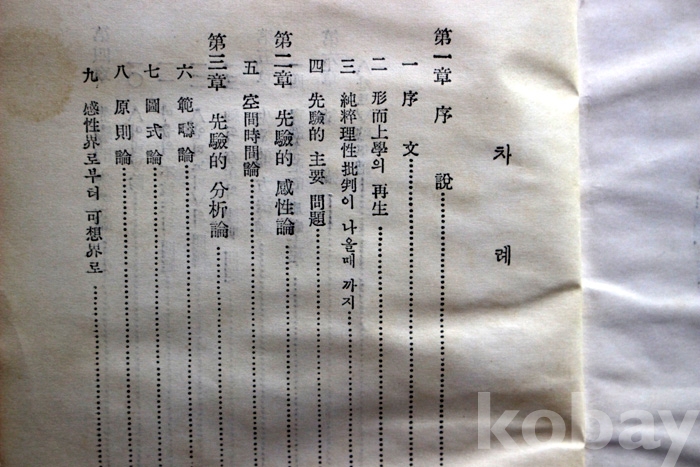 차 례
第一章 序 說
一 序 文
二 形而上學의 再生
三 純粹理性批判이 나올때 까지
四 先驗的 主要 問題
第二章 先驗的 感性論
五 空間時間論
第三章 先驗的 分析論
六 範疇論
七 圖式論
八 原則論
九 感性界로부터 可想界로
kobay